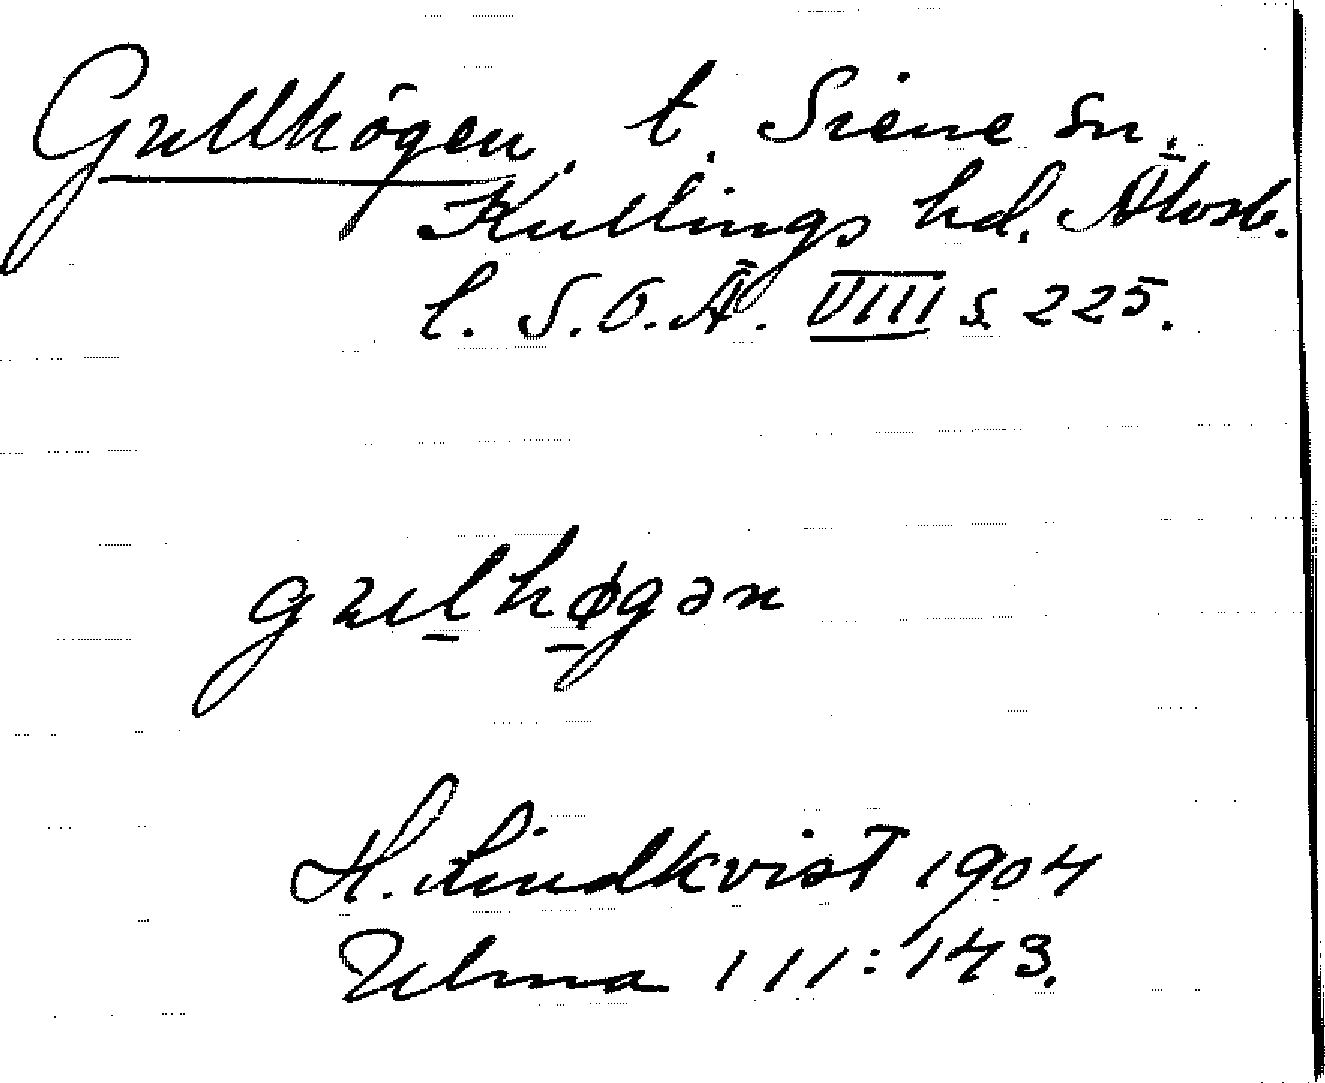 Gullhögen, t. Siene sn.
Kullings hd. Älvsb.
l. S.O.Ä. VIII s. 225.
gulhøgən
H. Lindkvist 1904
Ulma 111:143.